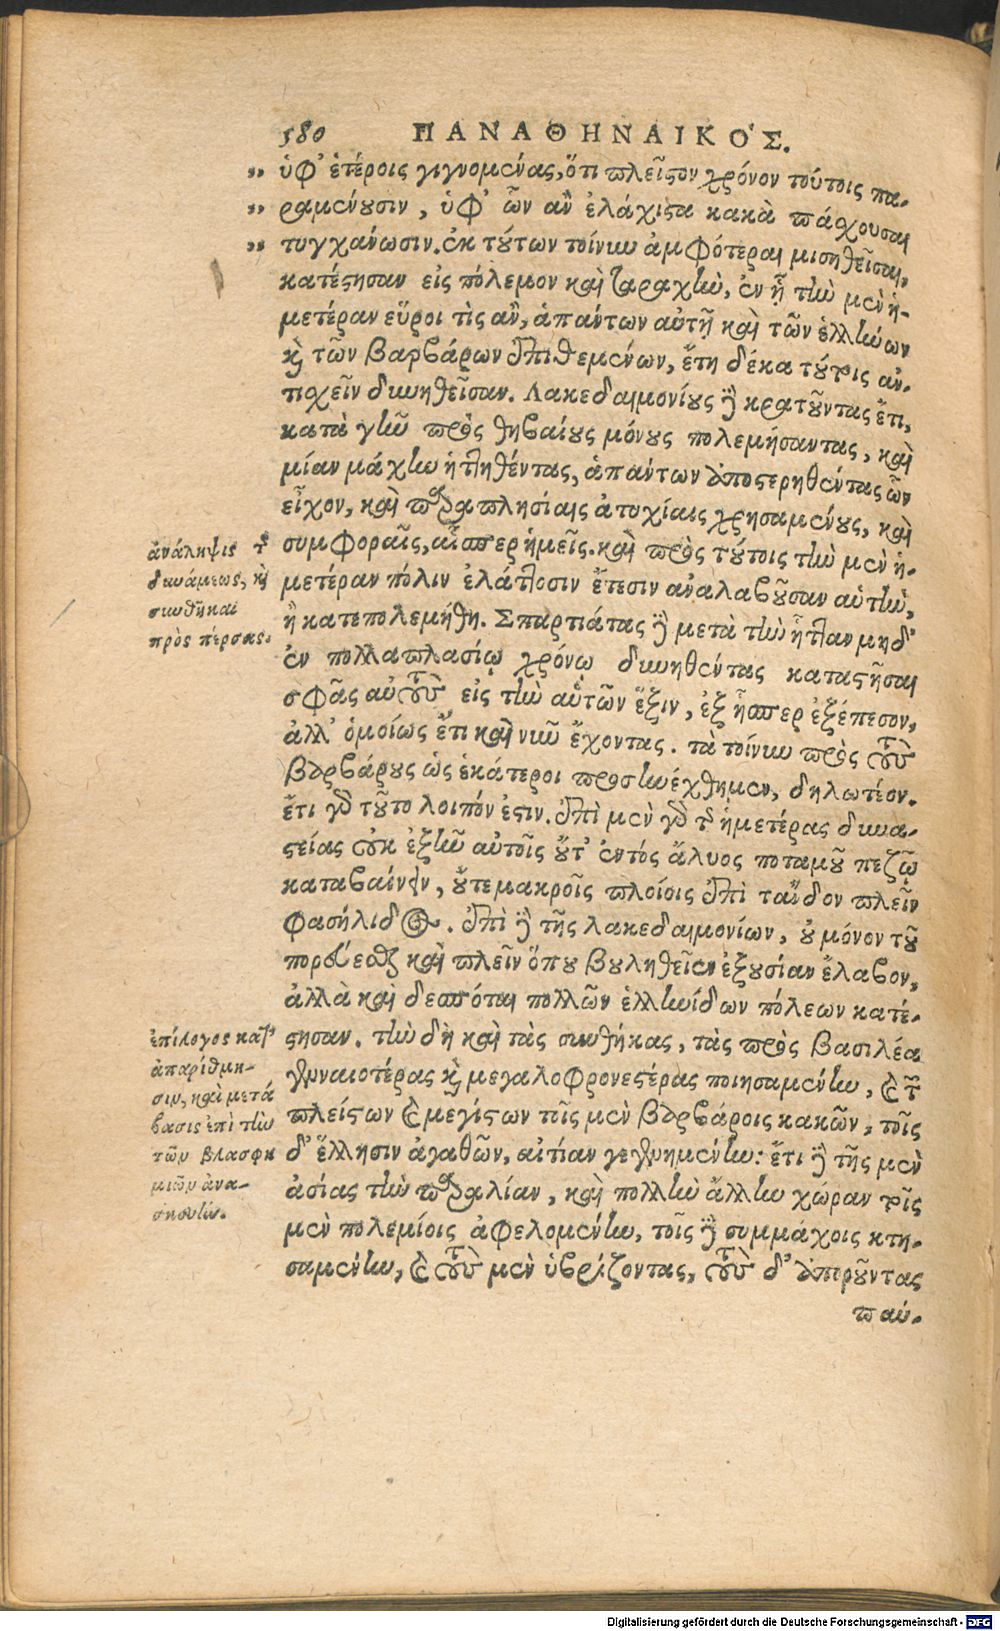 580 ΠΑΝΑΘΗΝΑΙΚΟΣ.
„ ὑφ' ἑτέροις γιγνομένας, ὅτι πλεῖστον χρόνον τούτοις πα-
„ ραμένουσιν, ὑφ' ὧν ἂν ἐλάχιστα κακὰ πάσχουσαι
„ τυγχάνωσιν. ἐκ τούτων τοίνυν ἀμφότεραι μισηθεῖσαι,
κατέστησαν εἰς πόλεμον καὶ ταραχὴν, ἐν ᾗ τὴν μὲν ἡ-
μετέραν εὕροι τὶς ἂν, ἁπάντων αὐτῇ καὶ τῶν ἑλλήνων
καὶ τῶν βαρβάρων ἐπιθεμένων, ἔτη δέκα τούτοις ἀν-
τιχεῖν δυνηθεῖσαν. Λακεδαιμονίους δὲ κρατοῦντας ἔτι,
κατὰ γῆν πρὸς θηβαίους μόνους πολεμήσαντας, καὶ
μίαν μάχην ἡττηθέντας, ἁπάντων ἀποστερηθέντας ὧν
εἶχον, καὶ παραπλησίαις ἀτυχίαις χρησαμένους, καὶ
συμφοραῖς, αἷσπερ ἡμεῖς. καὶ πρὸς τούτοις τὴν μὲν ἡ-
μετέραν πόλιν ἐλάττοσιν ἔτεσιν ἀναλαβοῦσαν αὑτὴν,
ἢ κατεπολεμήθη. Σπαρτιάτας δὲ μετὰ τὴν ἧτταν μηδ'
ἐν πολλαπλασίῳ χρόνῳ δυνηθέντας καταστῆσαι
σφᾶς αὐτοὺς εἰς τὴν αὐτῶν ἕξιν, ἐξ ἧσπερ ἐξέπεσον,
ἀλλ' ὁμοίως ἔτι καὶ νῦν ἔχοντας. τὰ τοίνυν πρὸς τοὺς
βαρβάρους ὡς ἑκάτεροι προσηνέχθημεν, δηλωτέον.
ἔτι γὰρ τοῦτο λοιπόν ἐστιν. ἐπὶ μὲν γὰρ τῆς ἡμετέρας δυνα-
στείας οὐκ ἐξῆν αὐτοῖς οὔτ' ἐντὸς ἅλυος ποταμοῦ πεζῷ
καταβαίνειν, οὔτε μακροῖς πλοίοις ἐπὶ τάδε πλεῖν
φασήλιδος. ἐπὶ δὲ τῆς λακεδαιμονίων, οὐ μόνον τοῦ
πορεύεσθαι καὶ πλεῖν ὅπου βουληθεῖεν ἐξουσίαν ἔλαβον,
ἀλλὰ καὶ δεσπόται πολλῶν ἑλληνίδων πόλεων κατέ-
στησαν. τὴν δὴ καὶ τὰς συνθήκας, τὰς πρὸς βασιλέα
γενναιοτέρας καὶ μεγαλοφρονεστέρας ποιησαμένην, καὶ τῶν
πλείστων καὶ μεγίστων τοῖς μὲν βαρβάροις κακῶν, τοῖς
δ' ἕλλησιν ἀγαθῶν, αἰτίαν γεγενημένην: ἔτι δὲ τῆς μὲν
ἀσίας τὴν παραλίαν, καὶ πολλὴν ἄλλην χώραν τοῖς
μὲν πολεμίοις ἀφελομένην, τοῖς δὲ συμμάχοις κτη-
σαμένην, καὶ τοὺς μὲν ὑβρίζοντας, τοὺς δ' ἀποροῦντας
παύ-
ἀνάληψις τῆς
δυνάμεως, καὶ
συνθῆκαι
πρὸς πέρσας.
ἐπίλογος κατ'
ἀπαρίθμη-
σιν, καὶ μετά
βασις ἐπὶ τὴν
τῶν βλασφη
μιῶν ἀνα-
σκευήν.
Digitalisierung gefördert durch die Deutsche Forschungsgemeinschaft - DFG